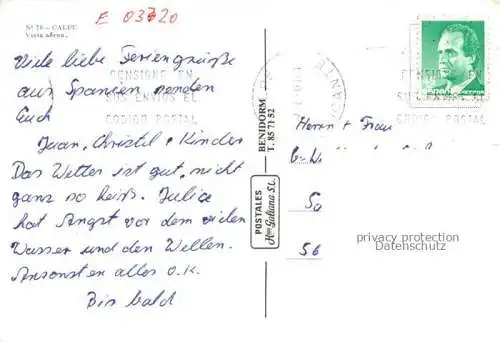 E 03720
Nº 76 - CALPE
Vista aérea.
Viele liebe Feriengrüße
aus Spanien senden
Euch
Juan, Christel + Kinder
Das Wetter ist gut, nicht
ganz so heiß. Julice
hat Angst vor dem vielen
Wasser und den Wellen.
Ansonsten alles o.K.
Bis bald
CONSIGNE EN
SUS ENVIOS EL
CODIGO POSTAL
POSTALES
Hnos Galiana S.L.
BENIDORM
T. 85 71 52
ALICANTE
CONSIGNE EN
SUS ENVIOS EL
CODIGO POSTAL
Herrn + Frau
So
56
privacy protection
Datenschutz